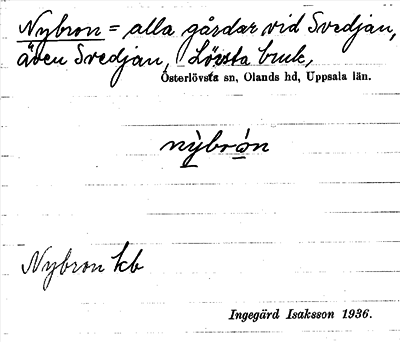 Nybron = alla gårdar vid Svedjan,
även Svedjan, Lövsta bruk,
Österlövsta sn, Olands hd, Uppsala län.
nỳbrón
Nybron kb
Ingegärd Isaksson 1936.